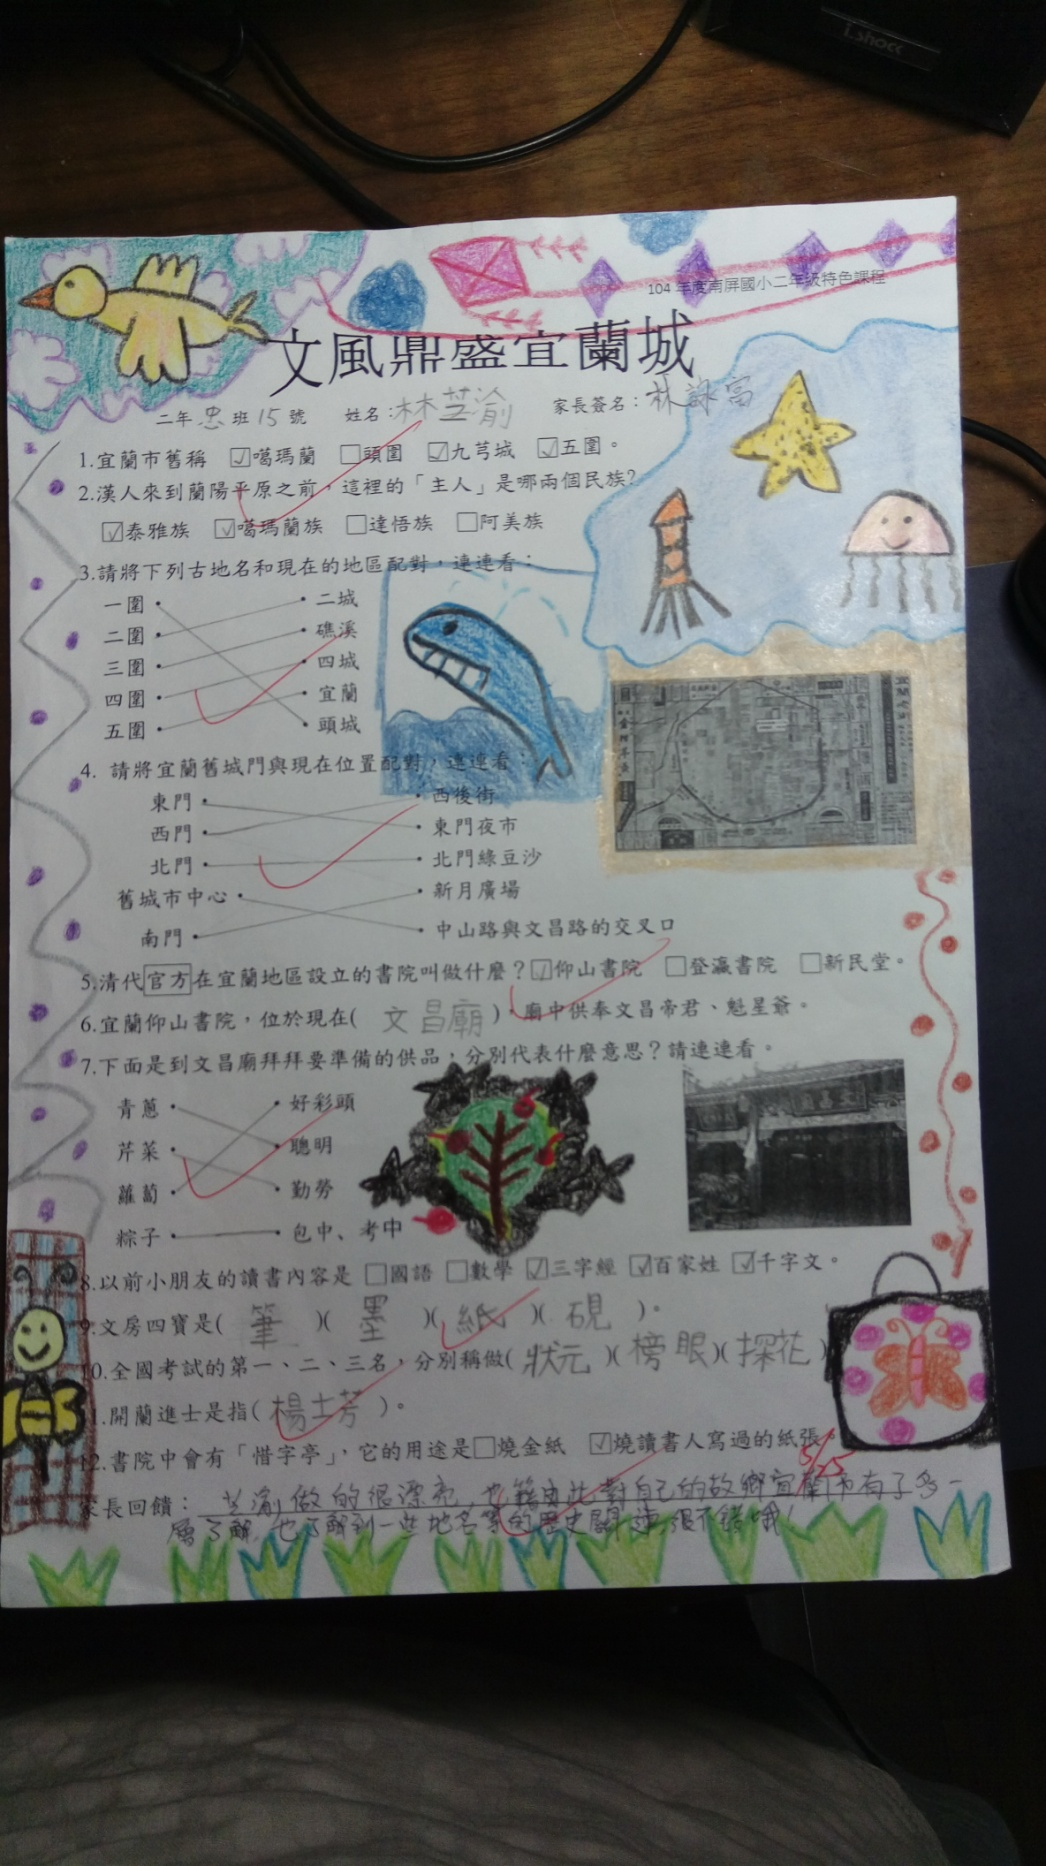 i.shock
104 年度南屏國小二年級特色課程
文風鼎盛宜蘭城
二年忠班15號 姓名:林芝渝 家長簽名:林詠富
1.宜蘭市舊稱 ☑噶瑪蘭 □頭圍 ☑九芎城 ☑五圍。
2.漢人來到蘭陽平原之前,這裡的「主人」是哪兩個民族?
☑泰雅族 ☑噶瑪蘭族 □達悟族 □阿美族
3.請將下列古地名和現在的地區配對,連連看:
一圍 二城
二圍 礁溪
三圍 四城
四圍 宜蘭
五圍 頭城
4. 請將宜蘭舊城門與現在位置配對,連連看:
東門 西後街
西門 東門夜市
北門 北門綠豆沙
舊城市中心 新月廣場
南門 中山路與文昌路的交叉口
5.清代官方在宜蘭地區設立的書院叫做什麼?☑仰山書院 □登瀛書院 □新民堂。
6.宜蘭仰山書院,位於現在( 文昌廟 ),廟中供奉文昌帝君、魁星爺。
7.下面是到文昌廟拜拜要準備的供品,分別代表什麼意思?請連連看。
青蔥 好彩頭
芹菜 聰明
蘿蔔 勤勞
粽子 包中、考中
8.以前小朋友的讀書內容是 □國語 □數學 ☑三字經 ☑百家姓 ☑千字文。
9.文房四寶是( 筆 )( 墨 )( 紙 )( 硯 )。
10.全國考試的第一、二、三名,分別稱做( 狀元 )( 榜眼 )( 探花 )
11.開蘭進士是指( 楊士芳 )。
12.書院中會有「惜字亭」,它的用途是□燒金紙 ☑燒讀書人寫過的紙張。
5/25
家長回饋: 芝渝做的很漂亮,也藉由此對自己的故鄉宜蘭市有了多一
層了解,也了解到一些地名等的歷史關連,很不錯哦!